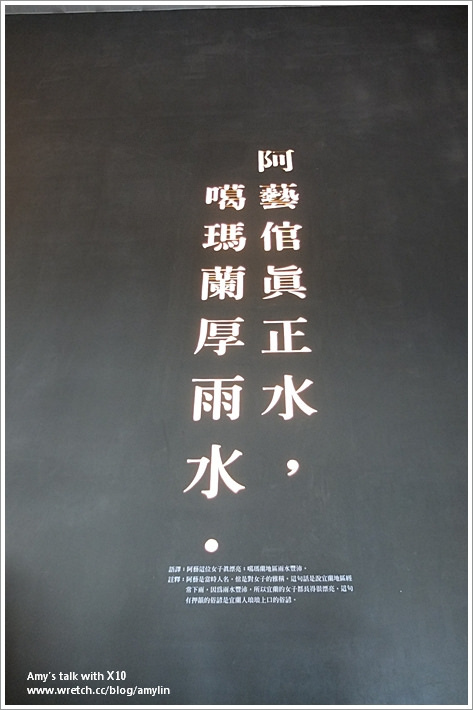 阿藝倌眞正水，
噶瑪蘭厚雨水．
語譯：阿藝這位女子眞漂亮；噶瑪蘭地區雨水豐沛。
註釋：阿藝是當時人名，倌是對女子的雅稱，這句話是說宜蘭地區經
常下雨，因爲雨水豐沛，所以宜蘭的女子都長得很漂亮。這句
有押韻的俗諺是宜蘭人琅琅上口的俗諺。
Amy's talk with X10
www.wretch.cc/blog/amylin